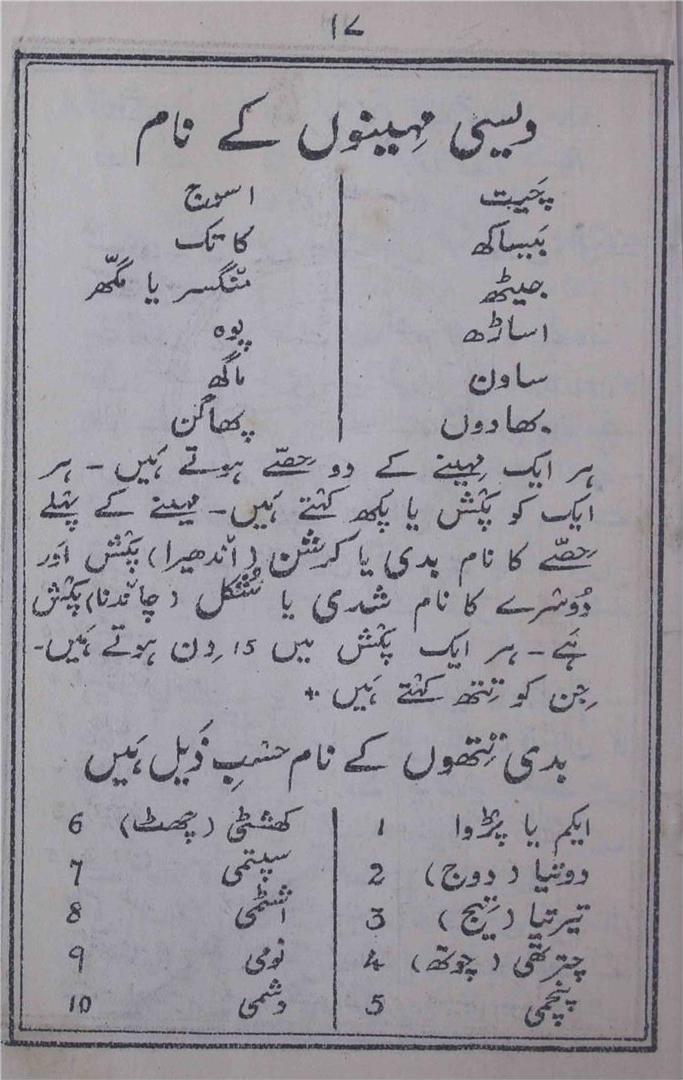 ۱۷
دیسی مہینوں کے نام
چَیت
بَیساکھ
جیٹھ
اساڑھ
ساون
بھادوں
اسوج
کاتک
منگسر یا مگھّر
پوہ
ماگھ
پھاگن
ہر ایک مہینے کے دو حِصّے ہوتے ہَیں۔ ہر
ایک کو پکش یا پکھ کہتے ہَیں۔ مہینے کے پہلے
حِصّے کا نام بدی یا کرشن (اندھیرا) پکش اَور
دُوسرے کا نام شدی یا شُکل (چاندنا) پکش
ہَے۔ ہر ایک پکش میں 15 دِن ہوتے ہَیں۔
جِن کو تِتھ کہتے ہَیں +
بدی تِتھوں کے نام حسبِ ذَیل ہَیں
ایکم یا پڑوا 1
دوتیا (دوج) 2
تیرتیا (تیج) 3
چترتھی (چوتھ) 4
پنچمی 5
کھشٹی (چھٹ) 6
سپتمی 7
اشٹمی 8
نومی 9
دشمی 10